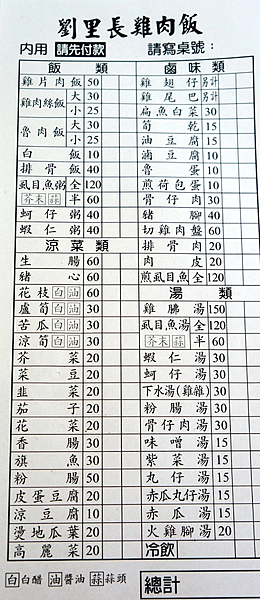 劉里長雞肉飯
內用 請先付款 請寫桌號：
飯類
雞片肉飯 50
雞肉絲飯 大 30
小 25
魯肉飯 大 30
小 25
白飯 10
排骨飯 40
虱目魚粥 全 120
芥末 蒜 半 60
蚵仔粥 40
蝦仁粥 40
涼菜類
生腸 60
豬心 60
花枝 白 油 60
蘆筍 白 油 30
苦瓜 白 油 30
涼筍 白 油 30
芥菜 20
菜豆 20
韭菜 20
茄子 20
花菜 20
香腸 30
旗魚 30
粉腸 50
皮蛋豆腐 20
涼豆腐 10
燙地瓜葉 20
高麗菜 20
滷味類
雞翅仔 另計
雞尾巴 另計
扁魚白菜 30
筍乾 15
油豆腐 10
滷豆腐 10
魯蛋 10
煎荷包蛋 10
骨仔肉 30
豬腳 40
切雞肉盤 60
排骨肉 20
肉皮 20
煎虱目魚 全 120
湯類
雞腳湯 150
虱目魚湯 全 120
芥末 蒜 半 60
蝦仁湯 30
蚵仔湯 30
下水湯(雞雜) 30
粉腸湯 30
骨仔肉湯 30
味噌湯 15
紫菜湯 15
丸仔湯 15
赤瓜丸仔湯 15
赤瓜湯 15
火雞腳湯 20
冷飲
白 白醋 油 醬油 蒜 蒜頭
總計